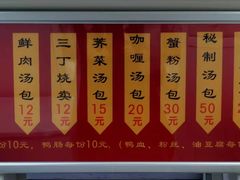 鲜肉汤包
12元
三丁烧卖
12元
荠菜汤包
15元
咖喱汤包
20元
蟹粉汤包
30元
秘制汤包
50元
份10元，鸭肠每份10元，（鸭血、粉丝、油豆腐每